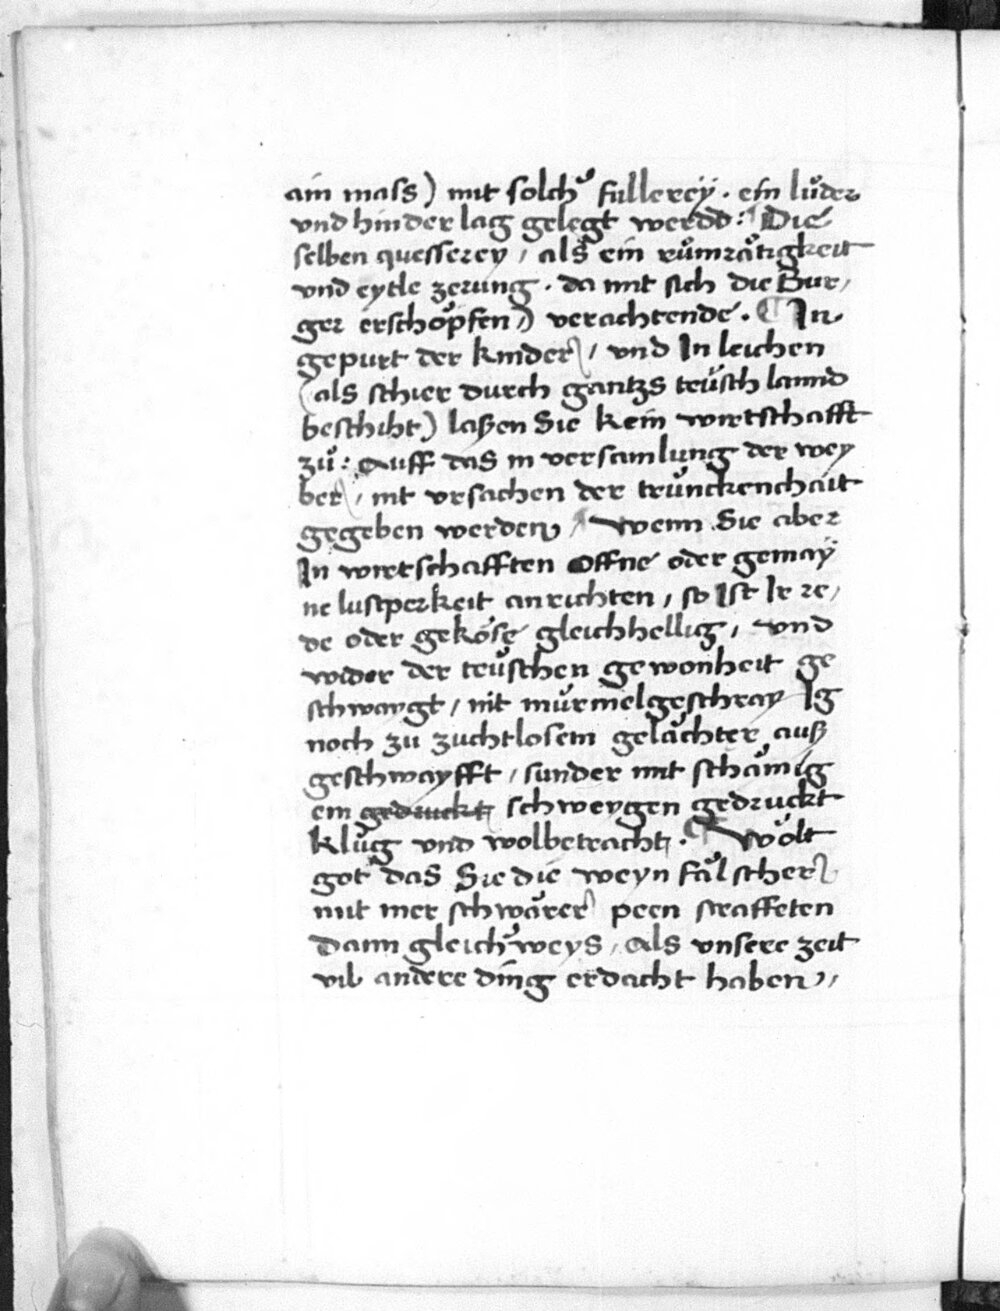 ain mass) mit solchͦ fullereÿ · ein lůder
vnd hinder lag gelegt werdd : ¶ Die
selben quesserey / als ein růmråtigkeit
vnd eytle zerung · da mit sich die Bur/
ger erschöpfen /) verachtende · ¶ In
gepurt der kinder / vnd In leichen
(als schier durch gantzs teůsch lannd
beschiht) laßen Sie kein wirtschafft
zů : Auff das in versamlung der wey
ber / nit vrsachen der trůnckenchait
gegeben werden / ¶ Wenn Sie aber
In wirtschafften offne oder gemaÿ
ne lustperkeit anrichten / so Ist Ir re/
de oder gekôse gleichhellig / vnd
wider der teůschen gewonheit ge
schwaygt / nit můrmelgeschray Ig
noch zu zuchtlosem gelåchter auß
geschwayfft / sunder mit schåmig
em gedruckt schweygen gedruckt
klůg vnd wolbetracht · ¶ Wölt
got das Sie die weyn fålscher
mit mer schwårer peen straffeten
dann gleichͦweys / als vnsere zeit
vil andere ding erdacht haben /